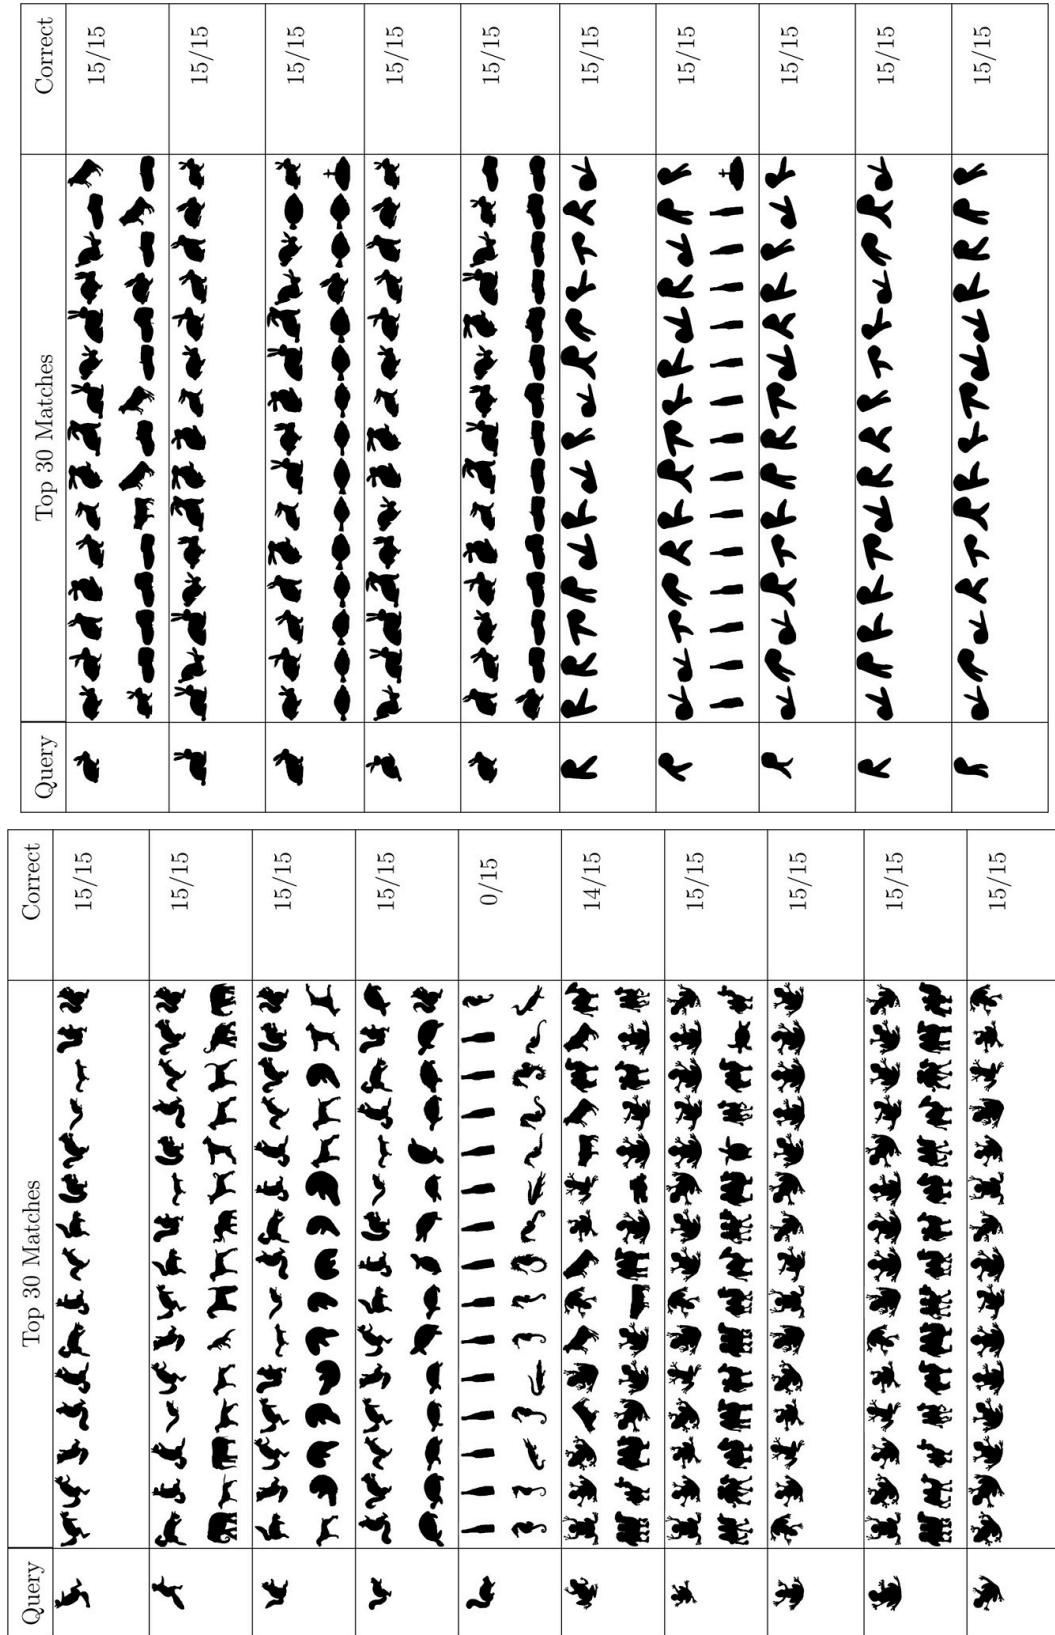 Query Top 30 Matches Correct
15/15
15/15
15/15
15/15
0/15
14/15
15/15
15/15
15/15
15/15
Query Top 30 Matches Correct
15/15
15/15
15/15
15/15
15/15
15/15
15/15
15/15
15/15
15/15